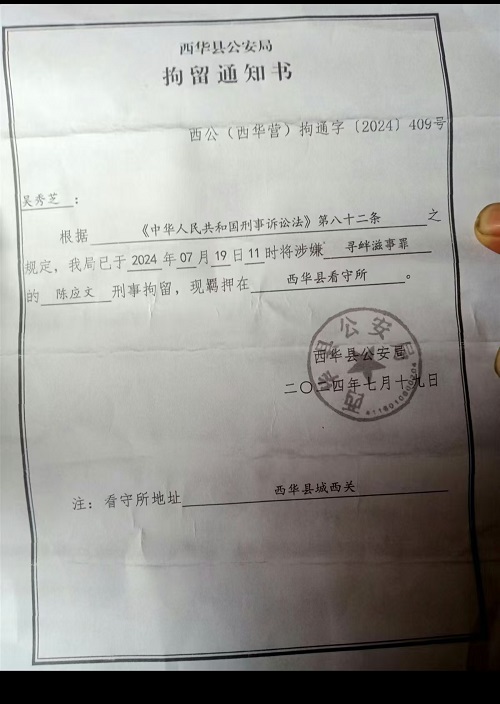 西华县公安局
拘留通知书
西公（西华营）拘通字〔2024〕409号
吴秀芝：
根据《中华人民共和国刑事诉讼法》第八十二条之
规定，我局已于2024年07月19日11时将涉嫌寻衅滋事罪
的陈应文刑事拘留，现羁押在西华县看守所。
西华县公安局
西华县公安局
二〇二四年七月十九日
注：看守所地址西华县城西关